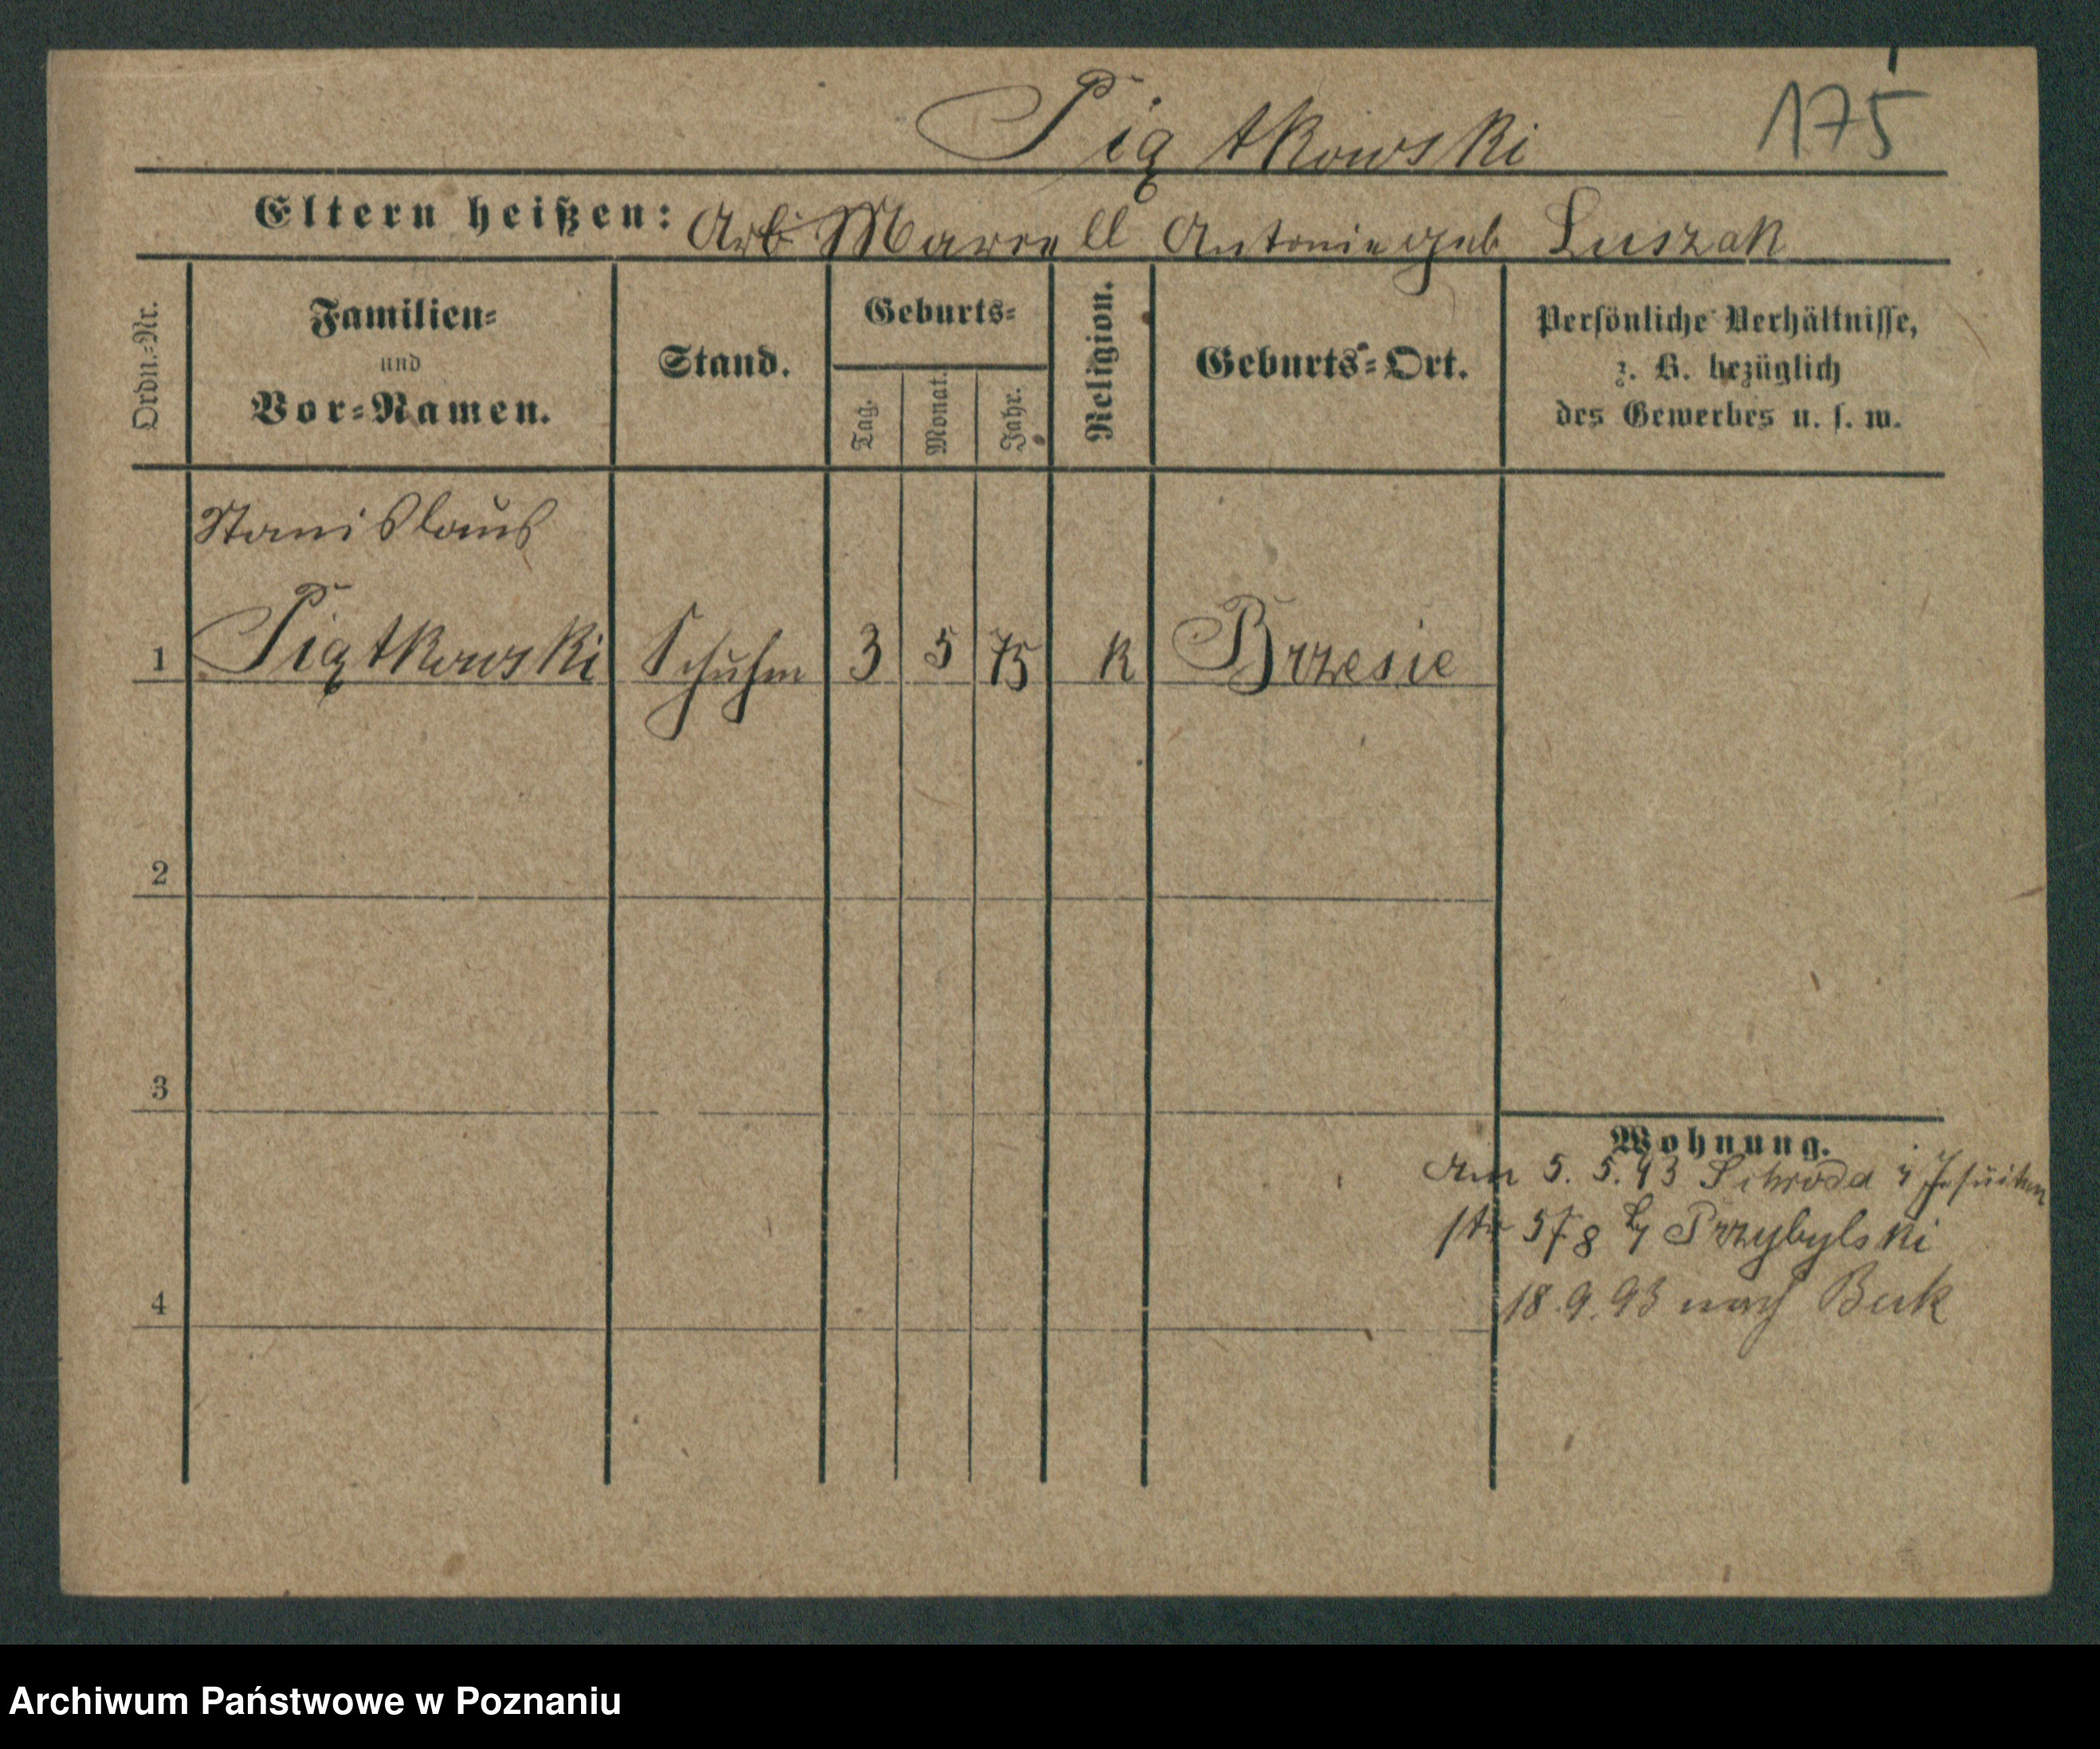 Piątkowski 175
Eltern heißen: Arb Marcell Antonie geb Luszak
Ordn.-Nr.
Familien-
und
Vor-Namen.
Stand.
Geburts-
Tag.
Monat.
Jahr.
Religion.
Geburts-Ort.
Persönliche Verhältnisse,
z. B. bezüglich
des Gewerbes u. s. w.
Stanislaus
1 Piątkowski Schuhm 3 5 75 K Brzesie
2
3
4
Wohnung.
Am 5. 5. 93 Schroda Jesuiten
str 57 8 Przybylski
18. 9. 93 nach Buk
Archiwum Państwowe w Poznaniu